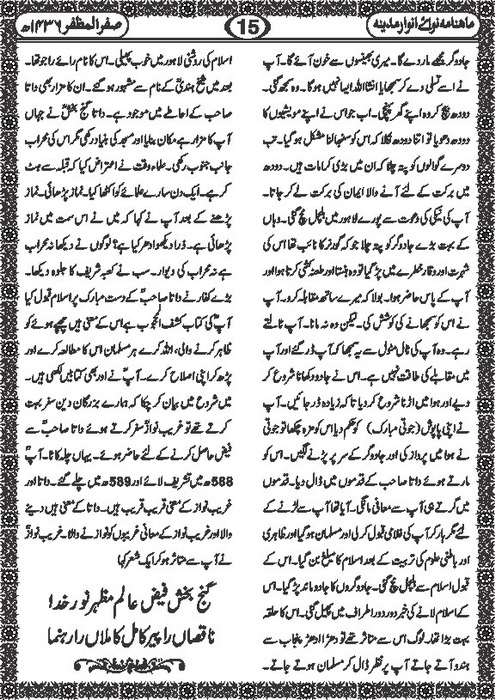 ماهنامه نوائے انوار مدینہ
15
صفر المظفر ۱۴۳۶ھ
جادوگر مجھے مار دے گا۔ میری بھینسوں سے خون آئے گا۔ آپ
نے اسے تسلی دے کر سمجھایا انشاء اللہ ایسا نہیں ہوگا۔ وہ سمجھ گئی۔
دودھ بیچ کر وہ اپنے گھر پہنچی۔ اب جو اس نے اپنے مویشیوں کا
دودھ دھویا تو اتنا دودھ نکلا کہ اس کو سنبھالنا مشکل ہوگیا۔ تب
دوسرے گوالوں کو پتہ چلا کہ ان میں بڑی کرامات ہیں۔ دودھ
میں برکت کے لئے آنے والا ایمان کی برکت لے کر جاتا۔
آپ کی نیکی کی دعوت سے پورے لاہور میں ہلچل مچ گئی۔ وہاں
کے بہت بڑے جادوگر کو پتہ چلا جو کہ گورنر کا نائب تھا اس کی
شہرت اور وقار خطرے میں پڑ گیا تو وہ ہنستا اور طعنہ کشی کرتا ہوا اور
آپ کے پاس حاضر ہوا۔ بولا کہ میرے ساتھ مقابلہ کرو۔ آپ
نے اس کو سمجھانے کی کوشش کی۔ لیکن وہ نہ مانا۔ آپ ٹالتے
رہے۔ وہ آپ کی ٹال مٹول سے یہ سمجھا کہ آپ ڈر گئے اور آپ
میں مقابلے کی طاقت نہیں ہے۔ اس نے جادو دکھانا شروع کر
دیے اور ہوا میں اڑنا شروع کر دیا تا کہ زیادہ ڈر جائیں۔ آپ
نے اپنی پاپوش (جوتی مبارک) کو حکم دیا اس کو مزہ چکھا تو جوتی
نے ہوا میں پرواز کی اور جادوگر کے سر پر پڑنے لگیں۔ اس کو
مارتے ہوئے داتا صاحب کے قدموں میں ڈال دیا۔ قدموں
میں گرتے ہی آپ سے معافی مانگی۔ آیا تھا آپ سے لڑنے کے
لئے مگر ہار کر آپ کی غلامی قبول کر لی اور مسلمان ہو گیا اور ظاہری
اور باطنی علوم کی تربیت کے بعد اسلام کا مبلغ بن گیا۔ اس کے
قبول اسلام سے ہلچل مچ گئی۔ جادوگروں کا جادو ماند پڑ گیا۔ اس
کے اسلام لانے کی خبر دور دور اطراف میں پھیل گئی۔ اس کا حلقہ
بہت بڑا تھا۔ لوگ اس سے متاثر تھے تو دھڑا دھڑ پنجاب سے
ہندو آتے جاتے آپ پر نظر ڈال کر مسلمان ہوتے جاتے۔
اسلام کی روشنی لاہور میں خوب پھیلی۔ اس کا نام رائے راجو تھا۔
بعد میں شیخ ہندیؒ کے نام سے مشہور ہو گئے۔ ان کا مزار بھی داتا
صاحب کے احاطے میں موجود ہے۔ داتا گنج بخشؒ نے جہاں
آپ کا مزار ہے مکان بنایا اور مسجد کی بنیاد رکھی مگر اس کی محراب
جانب جنوب رکھی۔ علماء وقت نے اعتراض کیا کہ قبلہ سے ہٹ
کر ہے۔ ایک دن سارے علمائے کو اکٹھا کیا۔ نماز پڑھائی۔ نماز
پڑھنے کے بعد آپ نے کہا کہ میں نے اس سمت میں نماز
پڑھائی ہے۔ ذرا دیکھو ادھر کیا ہے؟ لوگوں نے دیکھا نہ محراب
ہے نہ محراب کی دیوار۔ سب نے کعبہ شریف کا جلوہ دیکھا۔
بڑے کفار نے داتا صاحبؒ کے دست مبارک پر اسلام قبول کیا
آپ کی کتاب کشف المحجوب ہے اس کے معنی ہیں چھپے ہوئے کو
ظاہر کرنے والی، اللہ کرے ہر مسلمان اس کا مطالعہ کرے اور
پڑھ کر اپنی اصلاح کرے۔ آپؒ نے اور بھی کتابیں لکھی ہیں۔
میں شروع میں بیان کر چکا کہ ہمارے بزرگان دین سفر بہت
کرتے تھے تو غریب نوازؒ سفر کرتے ہوئے داتا صاحبؒ سے
فیض حاصل کرنے کے لئے حاضر ہوئے۔ یہاں چلہ کاٹا۔ آپؒ
588ھ میں تشریف لائے اور 589ھ میں چلے گئے۔ داتا اور
غریب نواز کے معنی قریب قریب ہیں۔ داتا کے معنی ہیں دینے
والا اور غریب نواز کے معانی غریبوں کو نوازنے والا۔ غریب نوازؒ
نے آپ سے متاثر ہو کر ایک شعر کہا
گنج بخش فیض عالم مظہر نور خدا
ناقصاں را پیر کامل کاملاں را رہنما